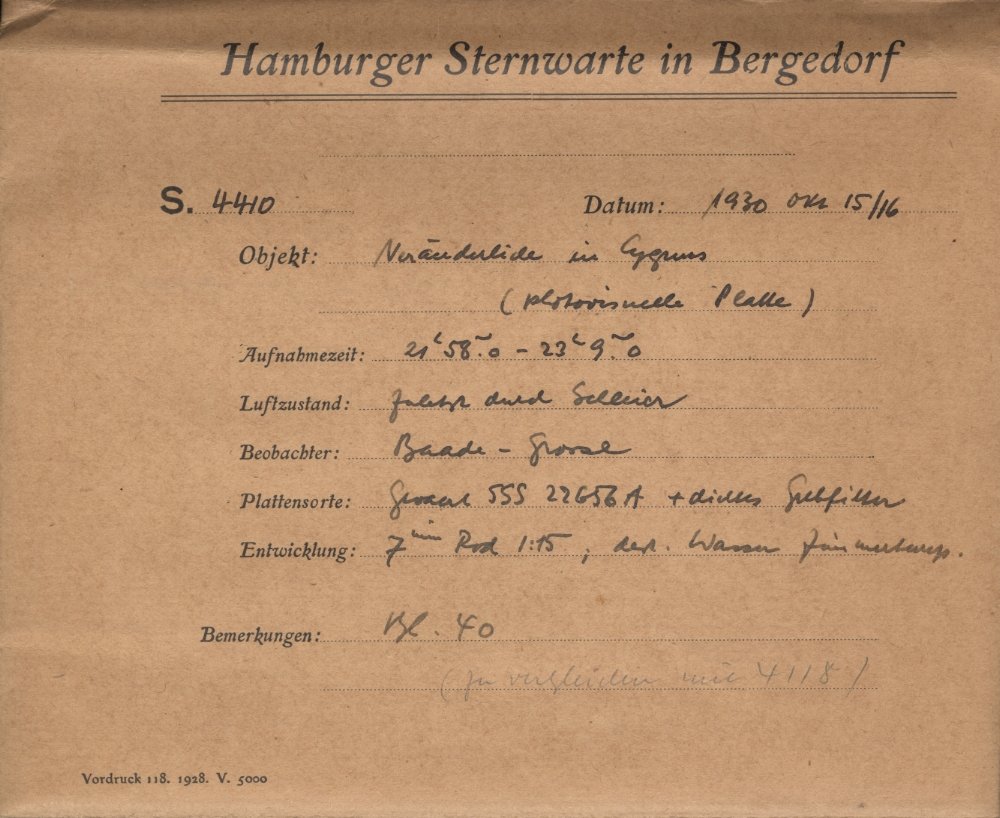 Hamburger Sternwarte in Bergedorf
S. 4410 Datum: 1930 Okt 15/16
Objekt: Veränderliche in Cygnus
(photovisuelle Platte)
Aufnahmezeit: 21ʰ58ᵐ.0 - 23ʰ9ᵐ.0
Luftzustand: zuletzt durch Schleier
Beobachter: Baade -
Plattensorte: Gevaert SSS 22656A + dichtes Gelbfilter
Entwicklung: 7ᵐⁱⁿ Rod 1:15, dest. Wasser Zimmertemp.
Bemerkungen: Bl. 40
(zu vergleichen mit 4118)
Vordruck 118. 1928. V. 5000